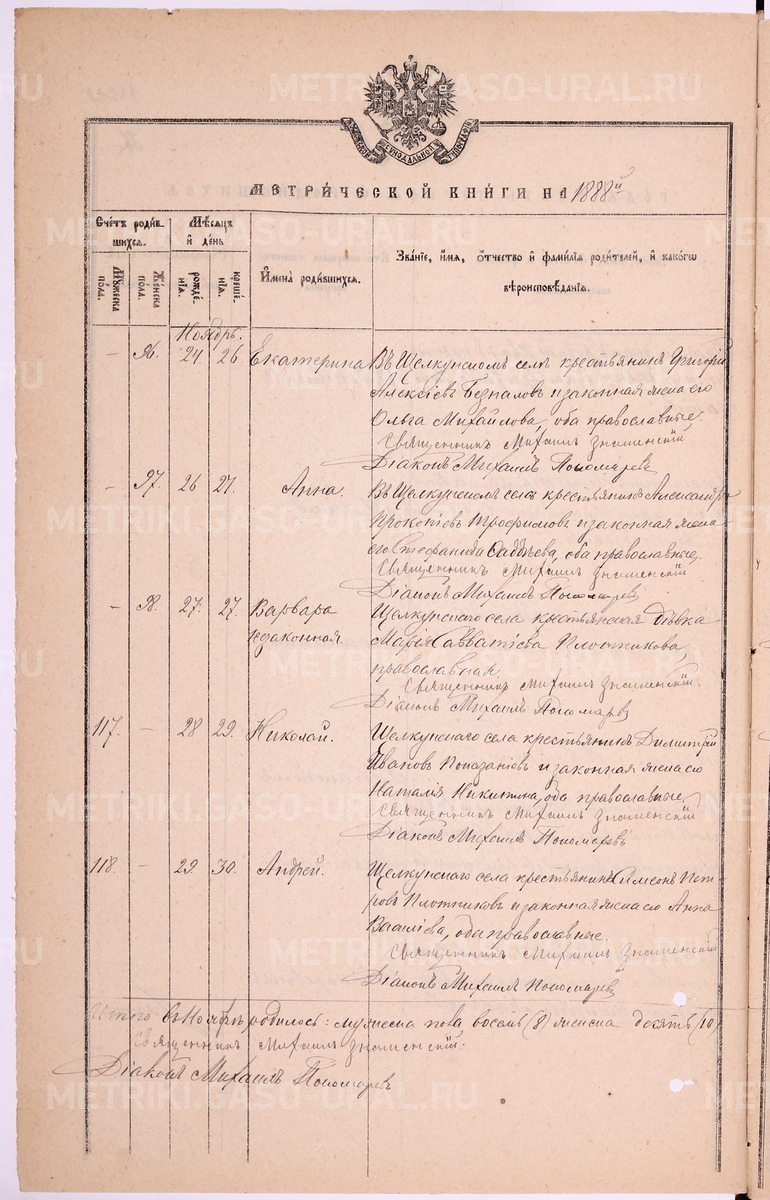 METRIKI.GASO-URAL.RU
МОСКОВСКОЙ СУНОДАЛЬНОЙ ТѴПОГРАФІИ
МЕТРИ́ЧЕСКОЙ КНИ́ГИ НА 1888й
Сче́тъ роди́вшихсѧ.
Мѣ́сѧцъ и҆ де́нь
И҆мена̀ роди́вшихсѧ.
Зва́нїе, и҆́мѧ, ѻ҆́тчество и҆ фами́лїѧ роди́телей, и҆ како́гѡ вѣроисповѣ́данїѧ.
Мꙋ́жеска по́ла.
Же́нска по́ла.
рожде́нїѧ.
креще́нїѧ.
Ноябрь.
– 96. 24 26. Екатерина Въ Щелкунскомъ селѣ крестьянинъ Григорій
Алексѣевъ и законная жена его
Ольга Михайлова, оба православные.
Священникъ Михаилъ Знаменскій
Діаконъ Михаилъ Пономаревъ
– 97. 26 27. Анна. Въ Щелкунскомъ селѣ крестьянинъ Александръ
Прокопіевъ Трофимовъ и законная жена
его Стефанида оба православные.
Священникъ Михаилъ Знаменскій
Діаконъ Михаилъ Пономаревъ
– 98. 27. 27. Варвара Щелкунскаго села крестьянская дѣвка
незаконная. Марья Савватіева Плотникова,
православная.
Священникъ Михаилъ Знаменскій.
Діаконъ Михаилъ Пономаревъ
117. – 28 29. Николай. Щелкунскаго села крестьянинъ Димитрій
Ивановъ и законная жена его
Наталія Никитина, оба православные.
Священникъ Михаилъ Знаменскій
Діаконъ Михаилъ Пономаревъ
118. – 29 30. Андрей. Щелкунскаго села крестьянинъ Симеонъ Пет-
ровъ Плотниковъ и законная жена его Анна
Василіева, оба православные.
Священникъ Михаилъ Знаменскій
Діаконъ Михаилъ Пономаревъ
Итого въ Ноябрѣ родилось: мужеска пола восемь (8) женска десять (10)
Священникъ Михаилъ Знаменскій.
Діаконъ Михаилъ Пономаревъ